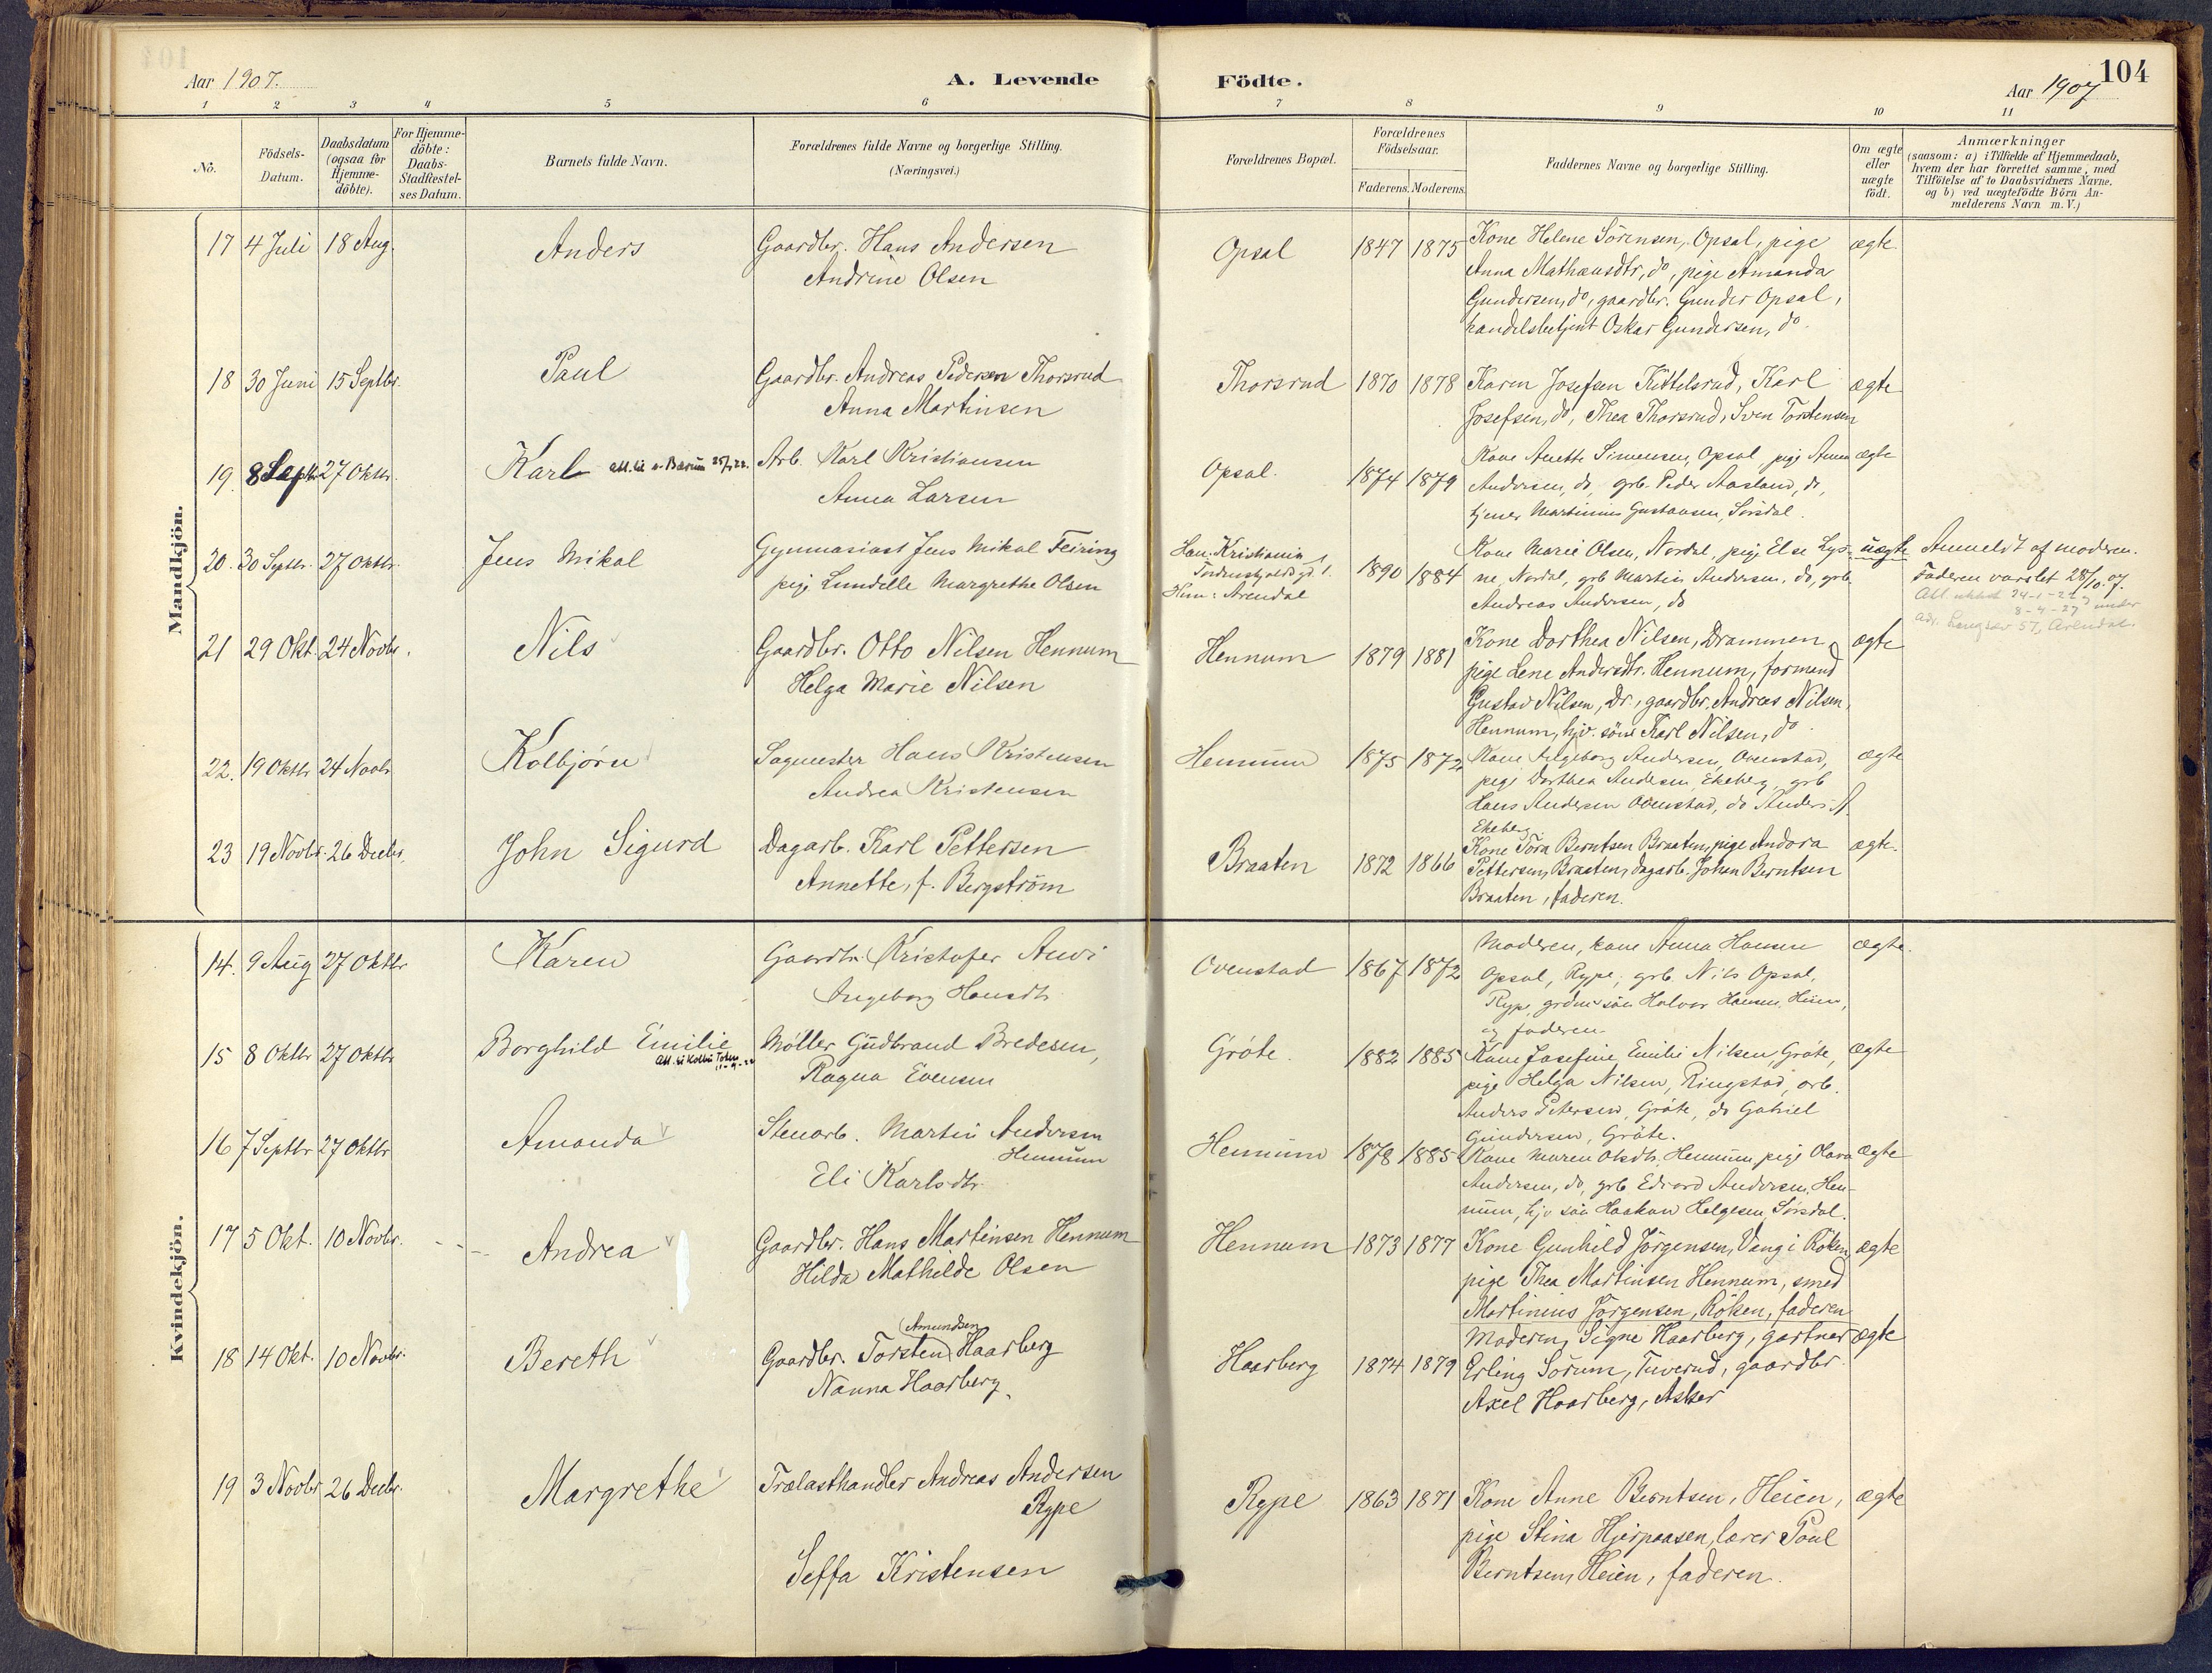 Aar 1907.
A. Levende Födte.
Aar 1907
104
1 2 3 4 5 6 7 8 9 10 11
No.
Födsels-
Datum.
Daabsdatum
(ogsaa for
Hjemme-
döbte).
For Hjemme-
döbte:
Daabs-
Stadfæstel-
ses Datum.
Barnets fulde Navn.
Forældrenes fulde Navne og borgerlige Stilling.
(Næringsvei.)
Forældrenes Bopæl.
Forældrenes
Födselsaar.
Faderens. Moderens.
Faddernes Navne og borgerlige Stilling.
Om ægte
eller
uægte
födt.
Anmærkninger
(saasom: a) i Tilfælde af Hjemmedaab,
hvem der har forrettet samme, med
Tilföielse af to Daabsvidners Navne,
og b) ved uægtefödte Börn An-
melderens Navn m. V.)
Mandkjön.
17 4 Juli 18 Aug. Anders
Gaardbr. Hans Andersen
Andrine Olsen
Opsal 1847 1875
Kone Helene Sörensen, Opsal, pige
Anna Mathæusdtr, do, pige Amanda
Gundersen, do, gaardbr. Gunder Opsal,
handelsbetjent Oskar Gundersen, do.
ægte
18 30 Juni 15 Septbr. Paul
Gaardbr. Andreas Pedersen Thorsrud
Anna Martinsen
Thorsrud 1870 1878
Karen Josefsen Kittelsrud, Karl
Josefsen, do, Thea Thorsrud, Sven Torstensen
ægte
19. 8 Septr 27 Oktbr. Karl
Arb. Karl Kristiansen
Anna Larsen
Opsal. 1874 1879
Kone Anette Simensen, Opsal, pige Anna
Andersen, do, grb. Peder Aasland, do,
tjener Martinius Gustavsen, Sörsdal.
ægte
20. 30 Septbr. 27 Oktbr. Jens Mikal
Gymnasiast Jens Mikal Feiring
pige Lundelle Margrethe Olsen
Han: Kristiania
Tordenskjoldsgd. 1.
Hun: Arendal
1890 1884
Kone Marie Olsen, Nordal, pige Else Lys-
ne, Nordal, grb Martin Andersen, do, grb.
Andreas Andersen, do
uægte
Anmeldt af moderen.
Faderen varslet 28/10.07.
21 29 Okt. 24 Novbr. Nils
Gaardbr. Otto Nilsen Hennum
Helga Marie Nilsen
Hennum 1879 1881
Kone Dorthea Nilsen, Drammen,
pige Lene Andersdtr. Hennum, formand
Gustav Nilsen, Dr., gaardbr. Andreas Nilsen,
Hennum, hjv. söns Karl Nilsen, do.
ægte
22. 19 Oktbr 24 Novbr Kolbjörn
Sagmester Hans Kristensen
Andrea Kristensen
Hennum 1875 1872
Kone Ingeborg Andersen, Ovenstad,
pige Dorthea Andersen, Ekeberg, grb
Hans Andersen Ovenstad, do Anders A.
Ekeberg
ægte
23 19 Novbr. 26 Decbr. John Sigurd
Dagarb. Karl Pettersen
Annette, f. Bergström
Braaten 1872 1866
Kone Tora Berntsen Braaten, pige Andora
Pettersen, Braaten, dagarb. Johan Berntsen
Braaten, faderen.
ægte.
Kvindekjön.
14. 9 Aug 27 Oktbr Karen
Gaardbr. Kristofer
Ingeborg Hansdtr.
Ovenstad 1867 1872
Moderen, kone Anna Hansen
Opsal, Rype, grb. Nils Opsal,
Rype, Halvor Hansen,
og faderen.
ægte.
15 8 Oktbr 27 Oktbr Borghild Emilie
Möller Gudbrand Bredesen,
Ragna Evensen
Gröte. 1882 1885
Kone Josefine Emilie Nilsen Gröte,
pige Helga Nilsen, Ringstad, arb.
Anders Petersen, Gröte, do Gabriel
Gundersen, Gröte.
ægte
16 7 Septbr 27 Oktbr Amanda
Stenarb. Martin Andersen
Hennum
Eli Karlsdtr.
Hennum 1878 1885
Kone Maren Olsdtr. Hennum, pige Olava
Andersen, do, grb Edvard Andersen, Hen-
num, hjv sön Haakon Helgesen, Sörsdal.
ægte
17 5 Okt. 10 Novbr. Andrea
Gaardbr. Hans Martinsen Hennum
Hilda Mathilde Olsen
Hennum 1873 1877
Kone Gunhild Jörgensen, Vang i Röken,
pige Thea Martinsen Hennum, smed
Martinius Jörgensen, Röken, faderen
ægte
18 14 Okt. 10 Novbr. Bereth
Amundsen
Gaardbr. Torsten Haarberg
Nanna Haarberg.
Haarberg 1874 1879
Moderen, Signe Haarberg, gartner
Erling Sörum, Tuverud, gaardbr.
Axel Haarberg, Asker
ægte
19 3 Novbr 26 Decbr. Margrethe
Trælasthandler Andreas Andersen
Rype
Seffa Kristensen
Rype 1863 1871
Kone Anne Berntsen, Heien,
pige Stina Hjerpaasen, lærer Poul
Berntsen, Heien, faderen.
ægte